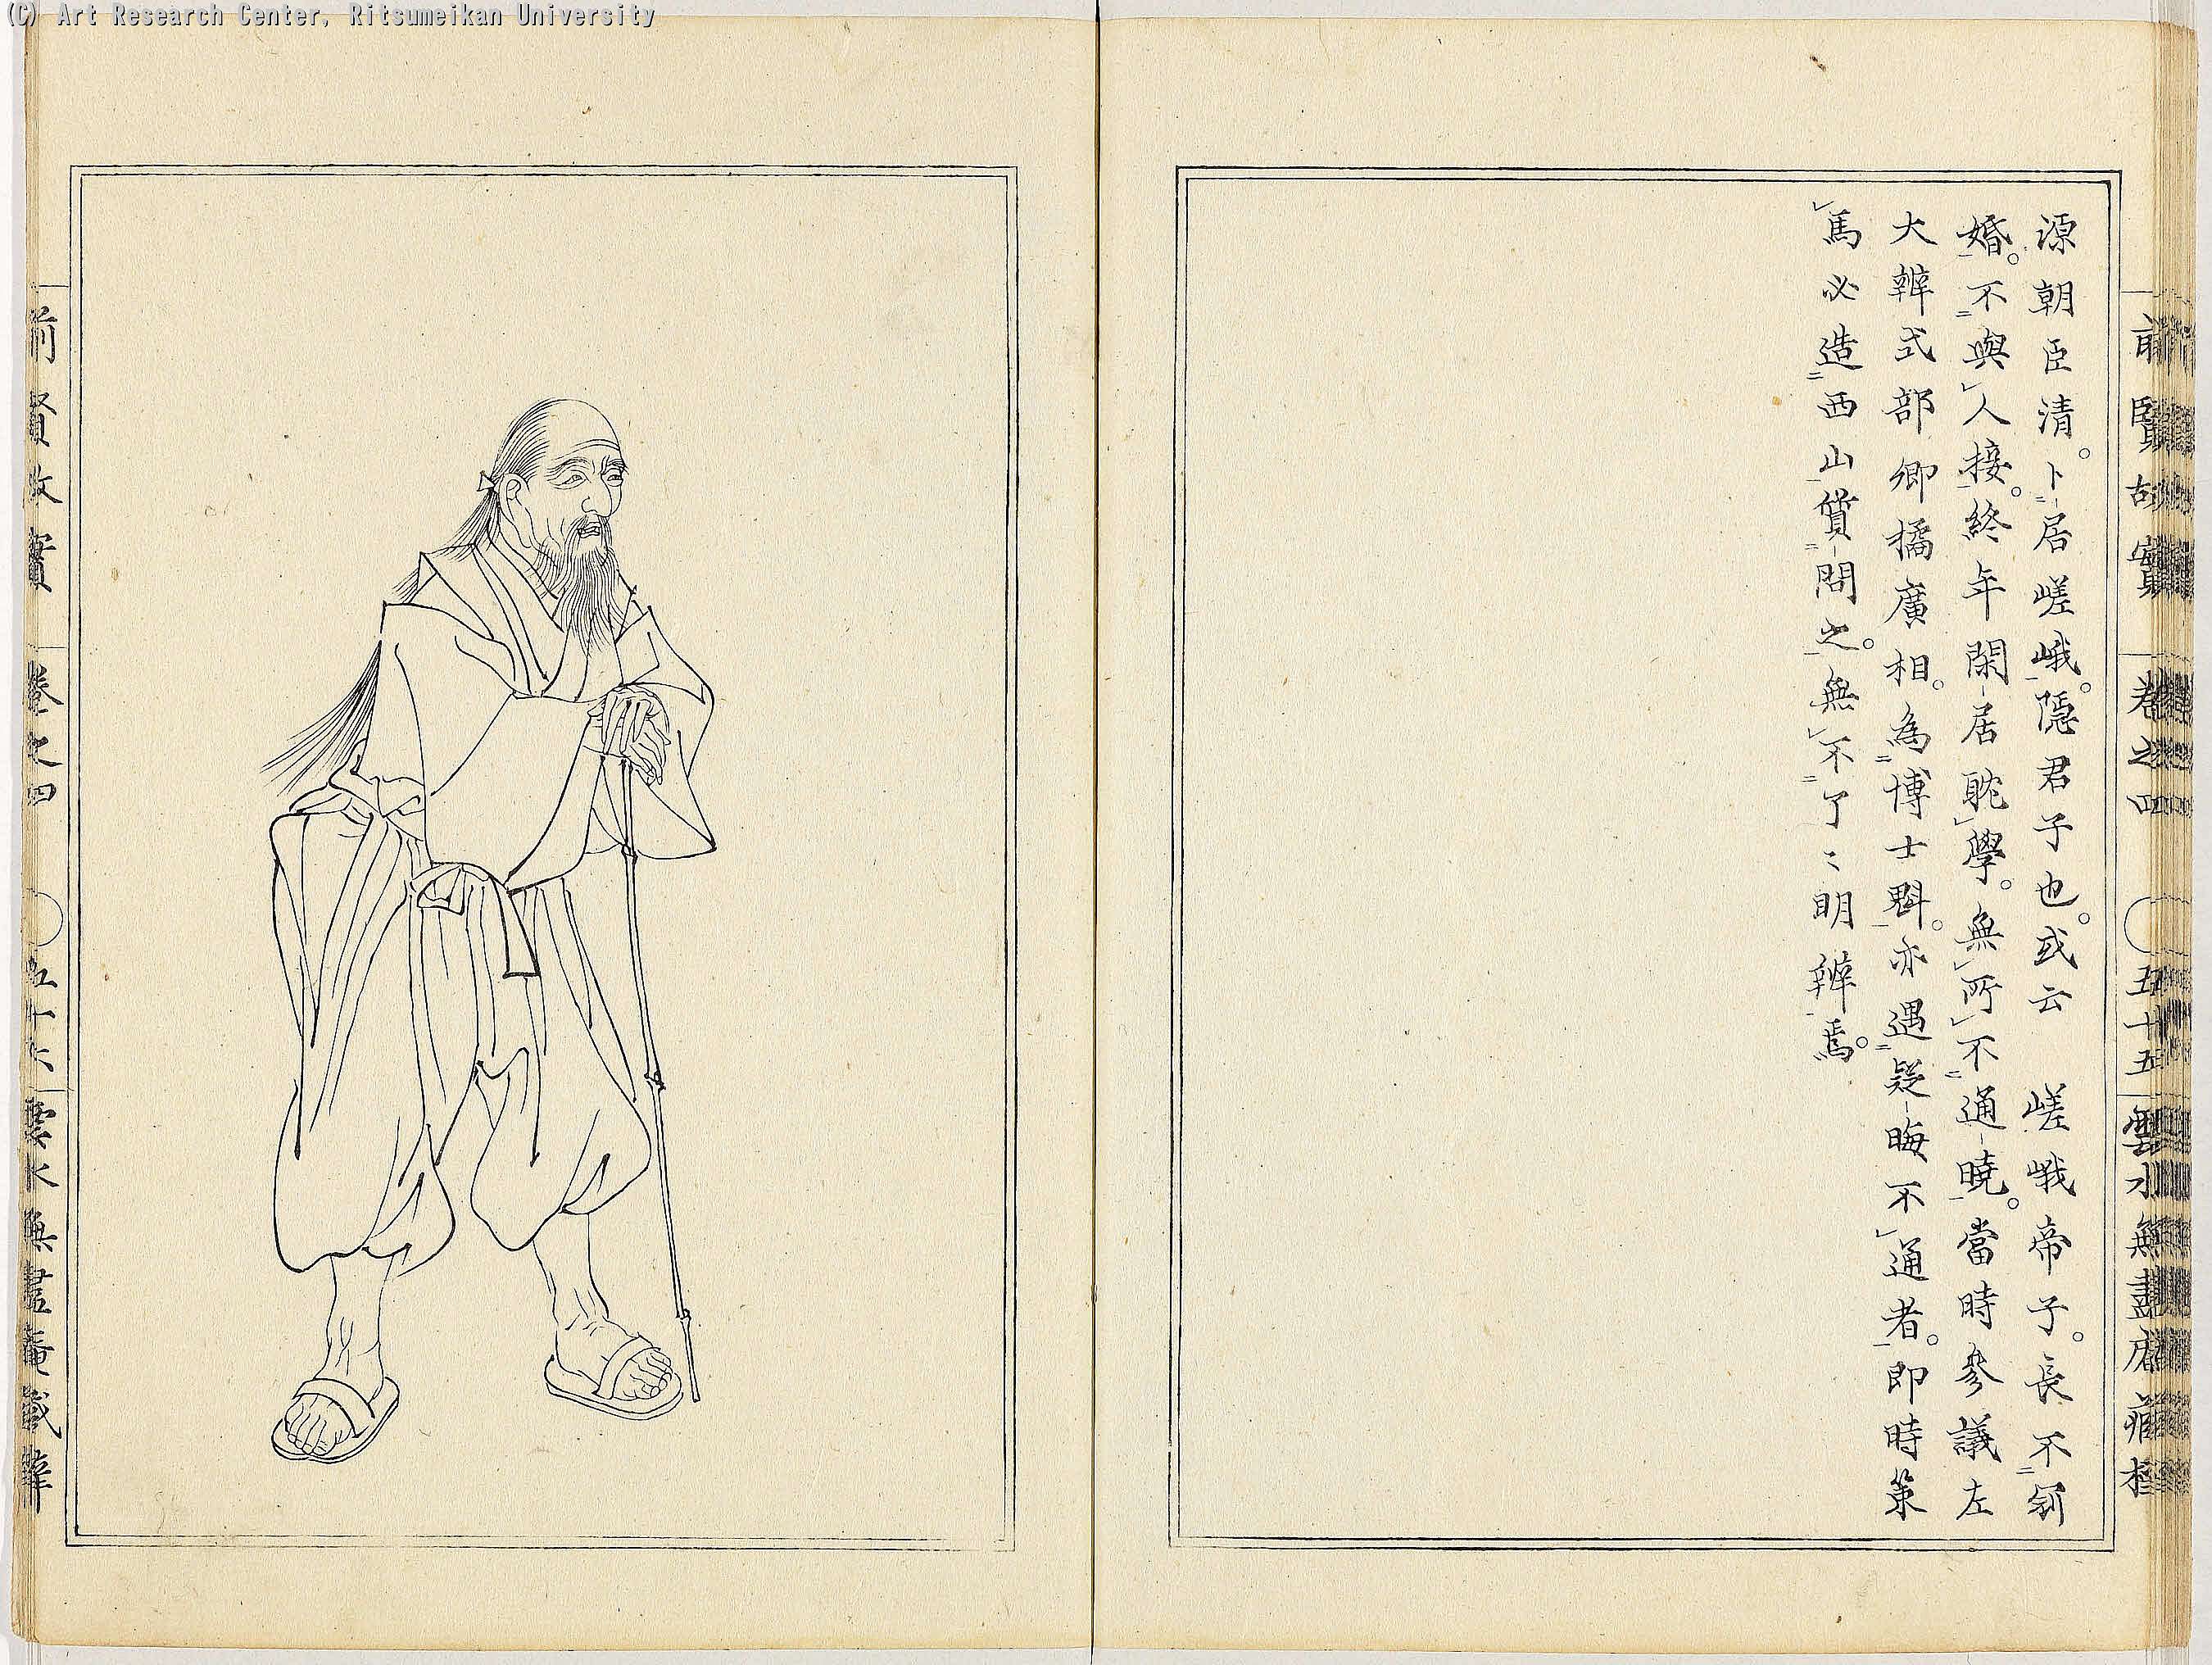 (C) Art Research Center, Ritsumeikan University
前賢故實 卷之四 五十五 雲水無盡庵藏梓
源朝臣清。卜居嵯峨。隱君子也。或云 嵯峨帝子。長不剃
婚。不與人接。終年閑居耽學。無所不通曉。當時參議左
大辨式部卿橘廣相。為博士魁。亦遇疑晦不通者。即時策
馬必造西山質問之。無不了〻明辨焉。
前賢故實 卷之四 五十六 雲水無盡庵藏梓